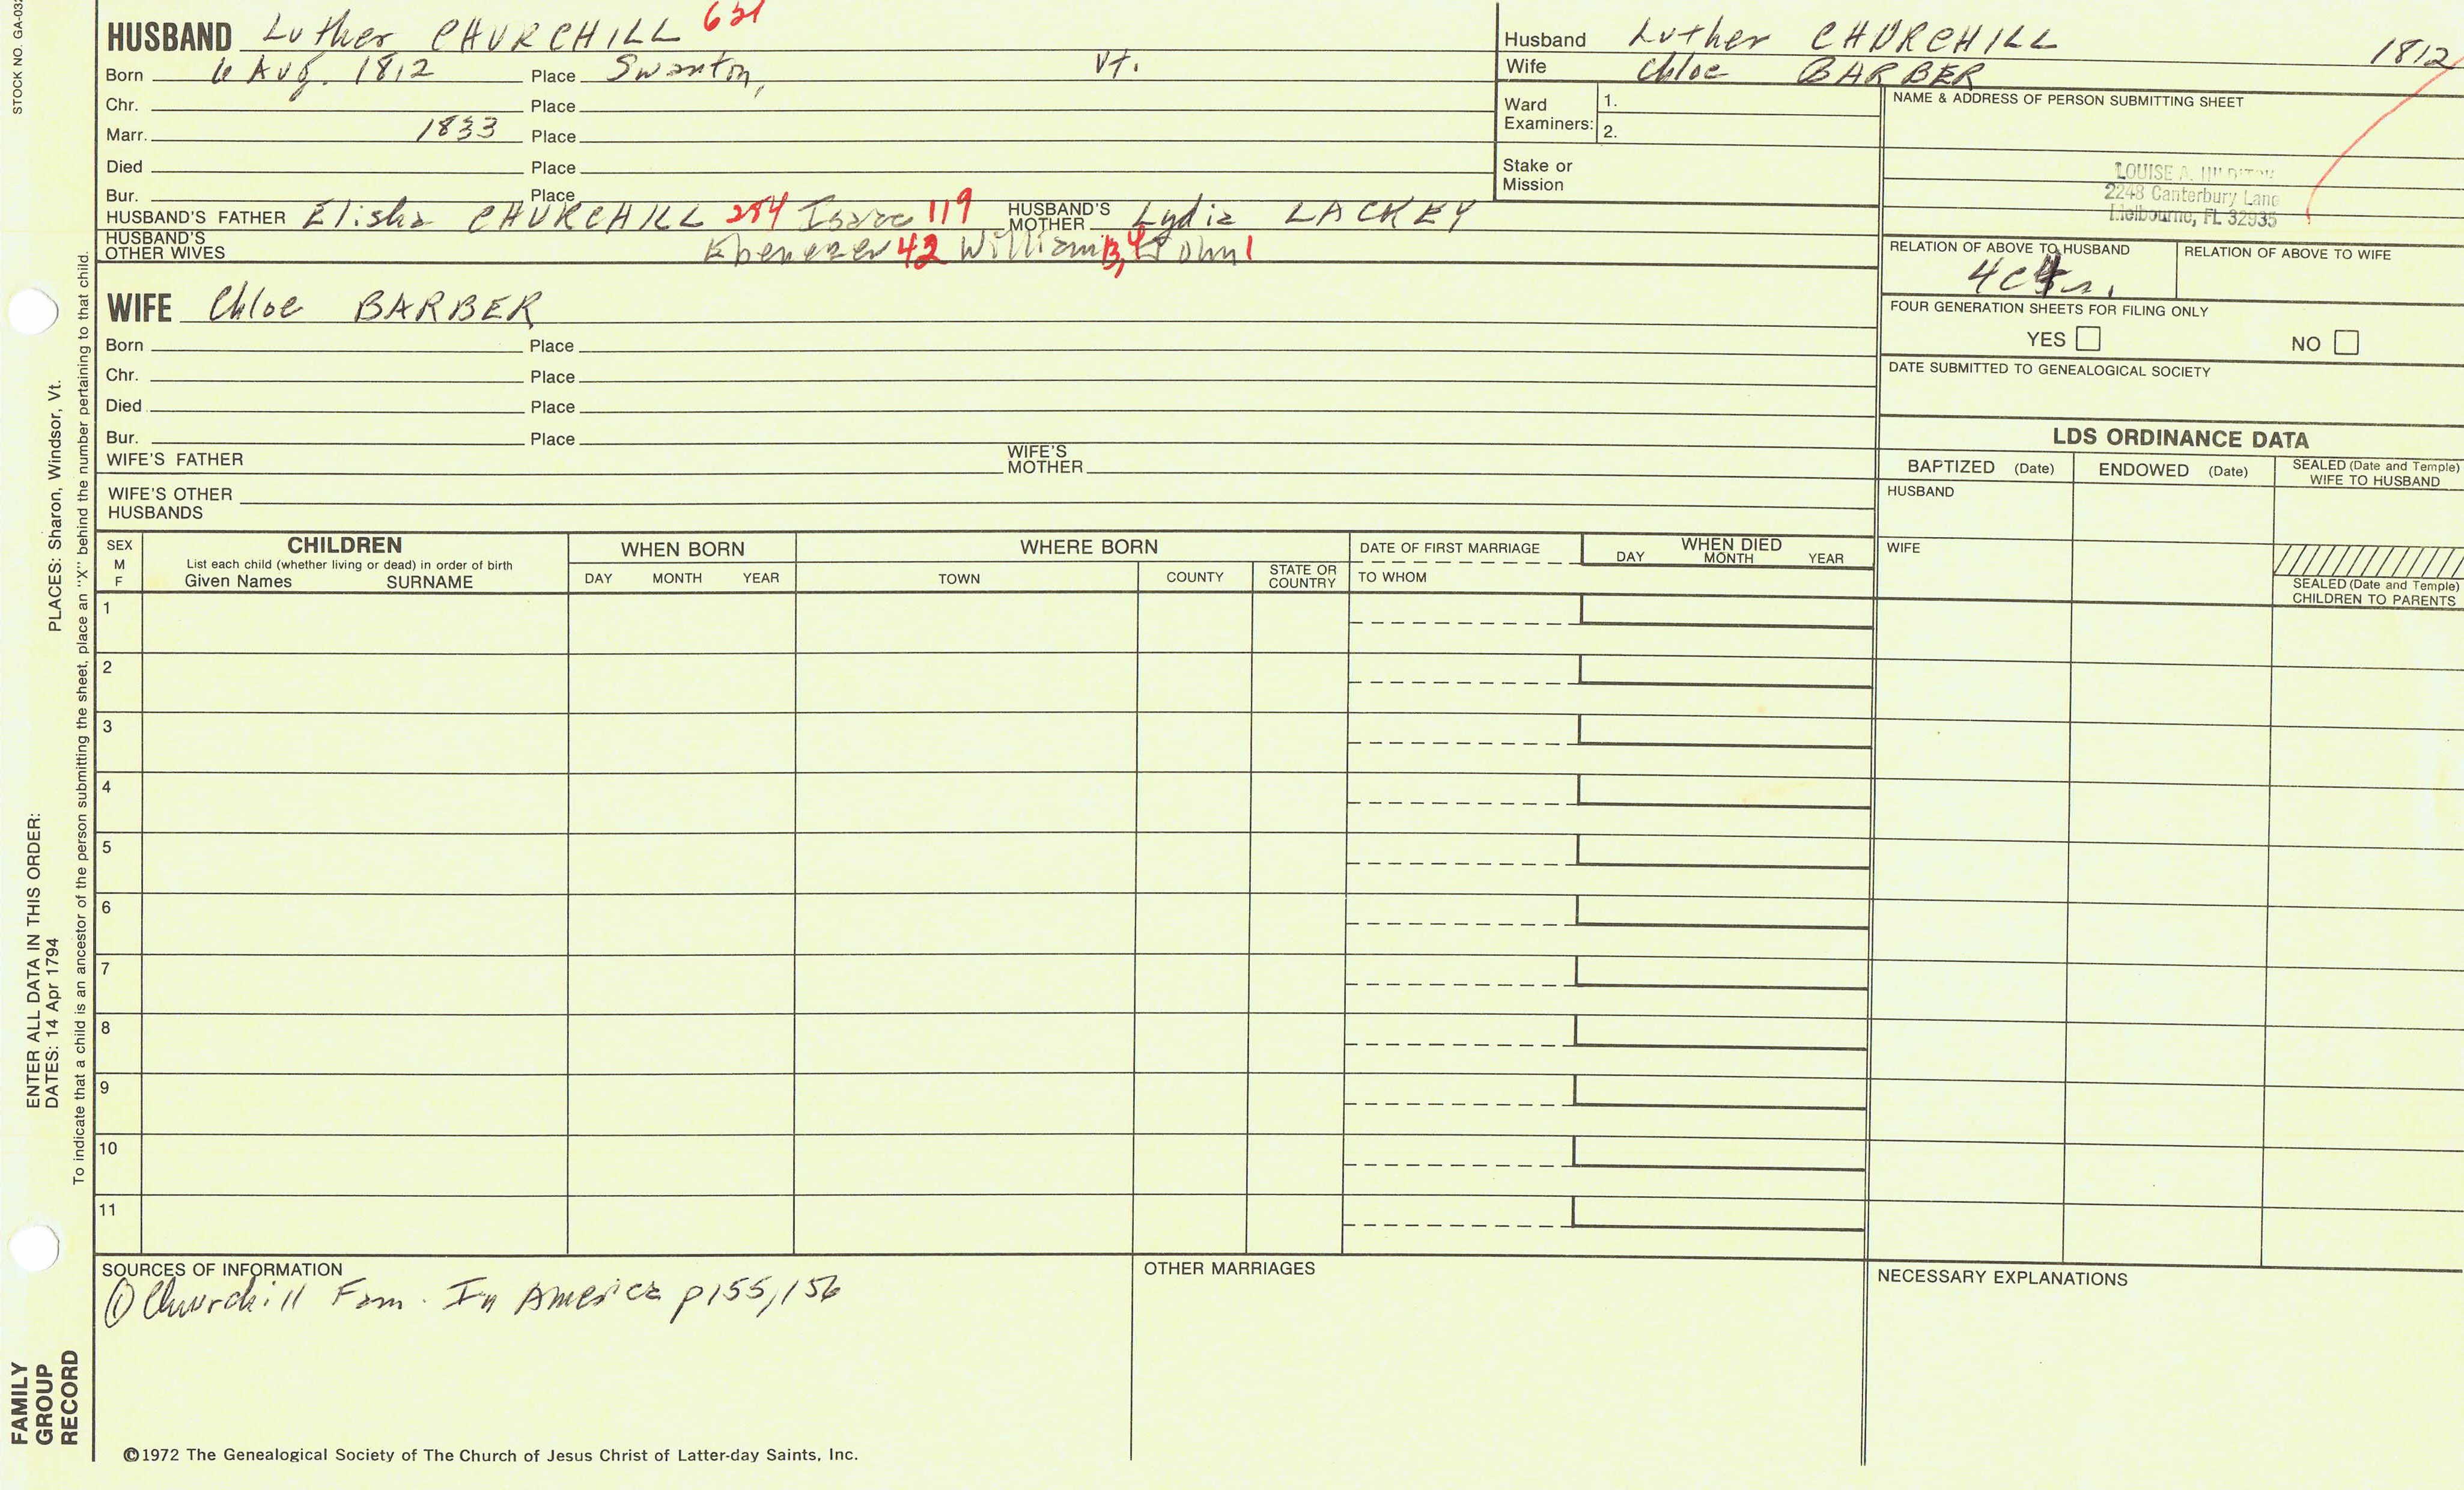 STOCK NO. GA-03
HUSBAND Luther CHURCHILL 621
Born 6 Aug. 1812 Place Swanton, Vt.
Chr. Place
Marr. 1833 Place
Died Place
Bur. Place
HUSBAND'S FATHER Elisha CHURCHILL 284 Isaac 119 HUSBAND'S MOTHER Lydia LACKEY
HUSBAND'S OTHER WIVES Ebenezer 42 William 13, 4 John 1
Husband Luther CHURCHILL 1812
Wife Chloe BARBER
Ward Examiners: 1.
2.
Stake or Mission
NAME & ADDRESS OF PERSON SUBMITTING SHEET
LOUISE A.
2248 Canterbury Lane
Melbourne, FL 32935
RELATION OF ABOVE TO HUSBAND
RELATION OF ABOVE TO WIFE
FOUR GENERATION SHEETS FOR FILING ONLY
YES NO
DATE SUBMITTED TO GENEALOGICAL SOCIETY
WIFE Chloe BARBER
Born Place
Chr. Place
Died Place
Bur. Place
WIFE'S FATHER WIFE'S MOTHER
WIFE'S OTHER HUSBANDS
LDS ORDINANCE DATA
BAPTIZED (Date) ENDOWED (Date) SEALED (Date and Temple) WIFE TO HUSBAND
HUSBAND
WIFE
SEALED (Date and Temple) CHILDREN TO PARENTS
SEX M F
CHILDREN
List each child (whether living or dead) in order of birth
Given Names SURNAME
WHEN BORN
DAY MONTH YEAR
WHERE BORN
TOWN COUNTY STATE OR COUNTRY
DATE OF FIRST MARRIAGE
TO WHOM
WHEN DIED
DAY MONTH YEAR
1
2
3
4
5
6
7
8
9
10
11
SOURCES OF INFORMATION
① Churchill Fam. In America p155,156
OTHER MARRIAGES
NECESSARY EXPLANATIONS
©1972 The Genealogical Society of The Church of Jesus Christ of Latter-day Saints, Inc.
FAMILY
GROUP
RECORD
ENTER ALL DATA IN THIS ORDER:
DATES: 14 Apr 1794 PLACES: Sharon, Windsor, Vt.
To indicate that a child is an ancestor of the person submitting the sheet, place an "X" behind the number pertaining to that child.